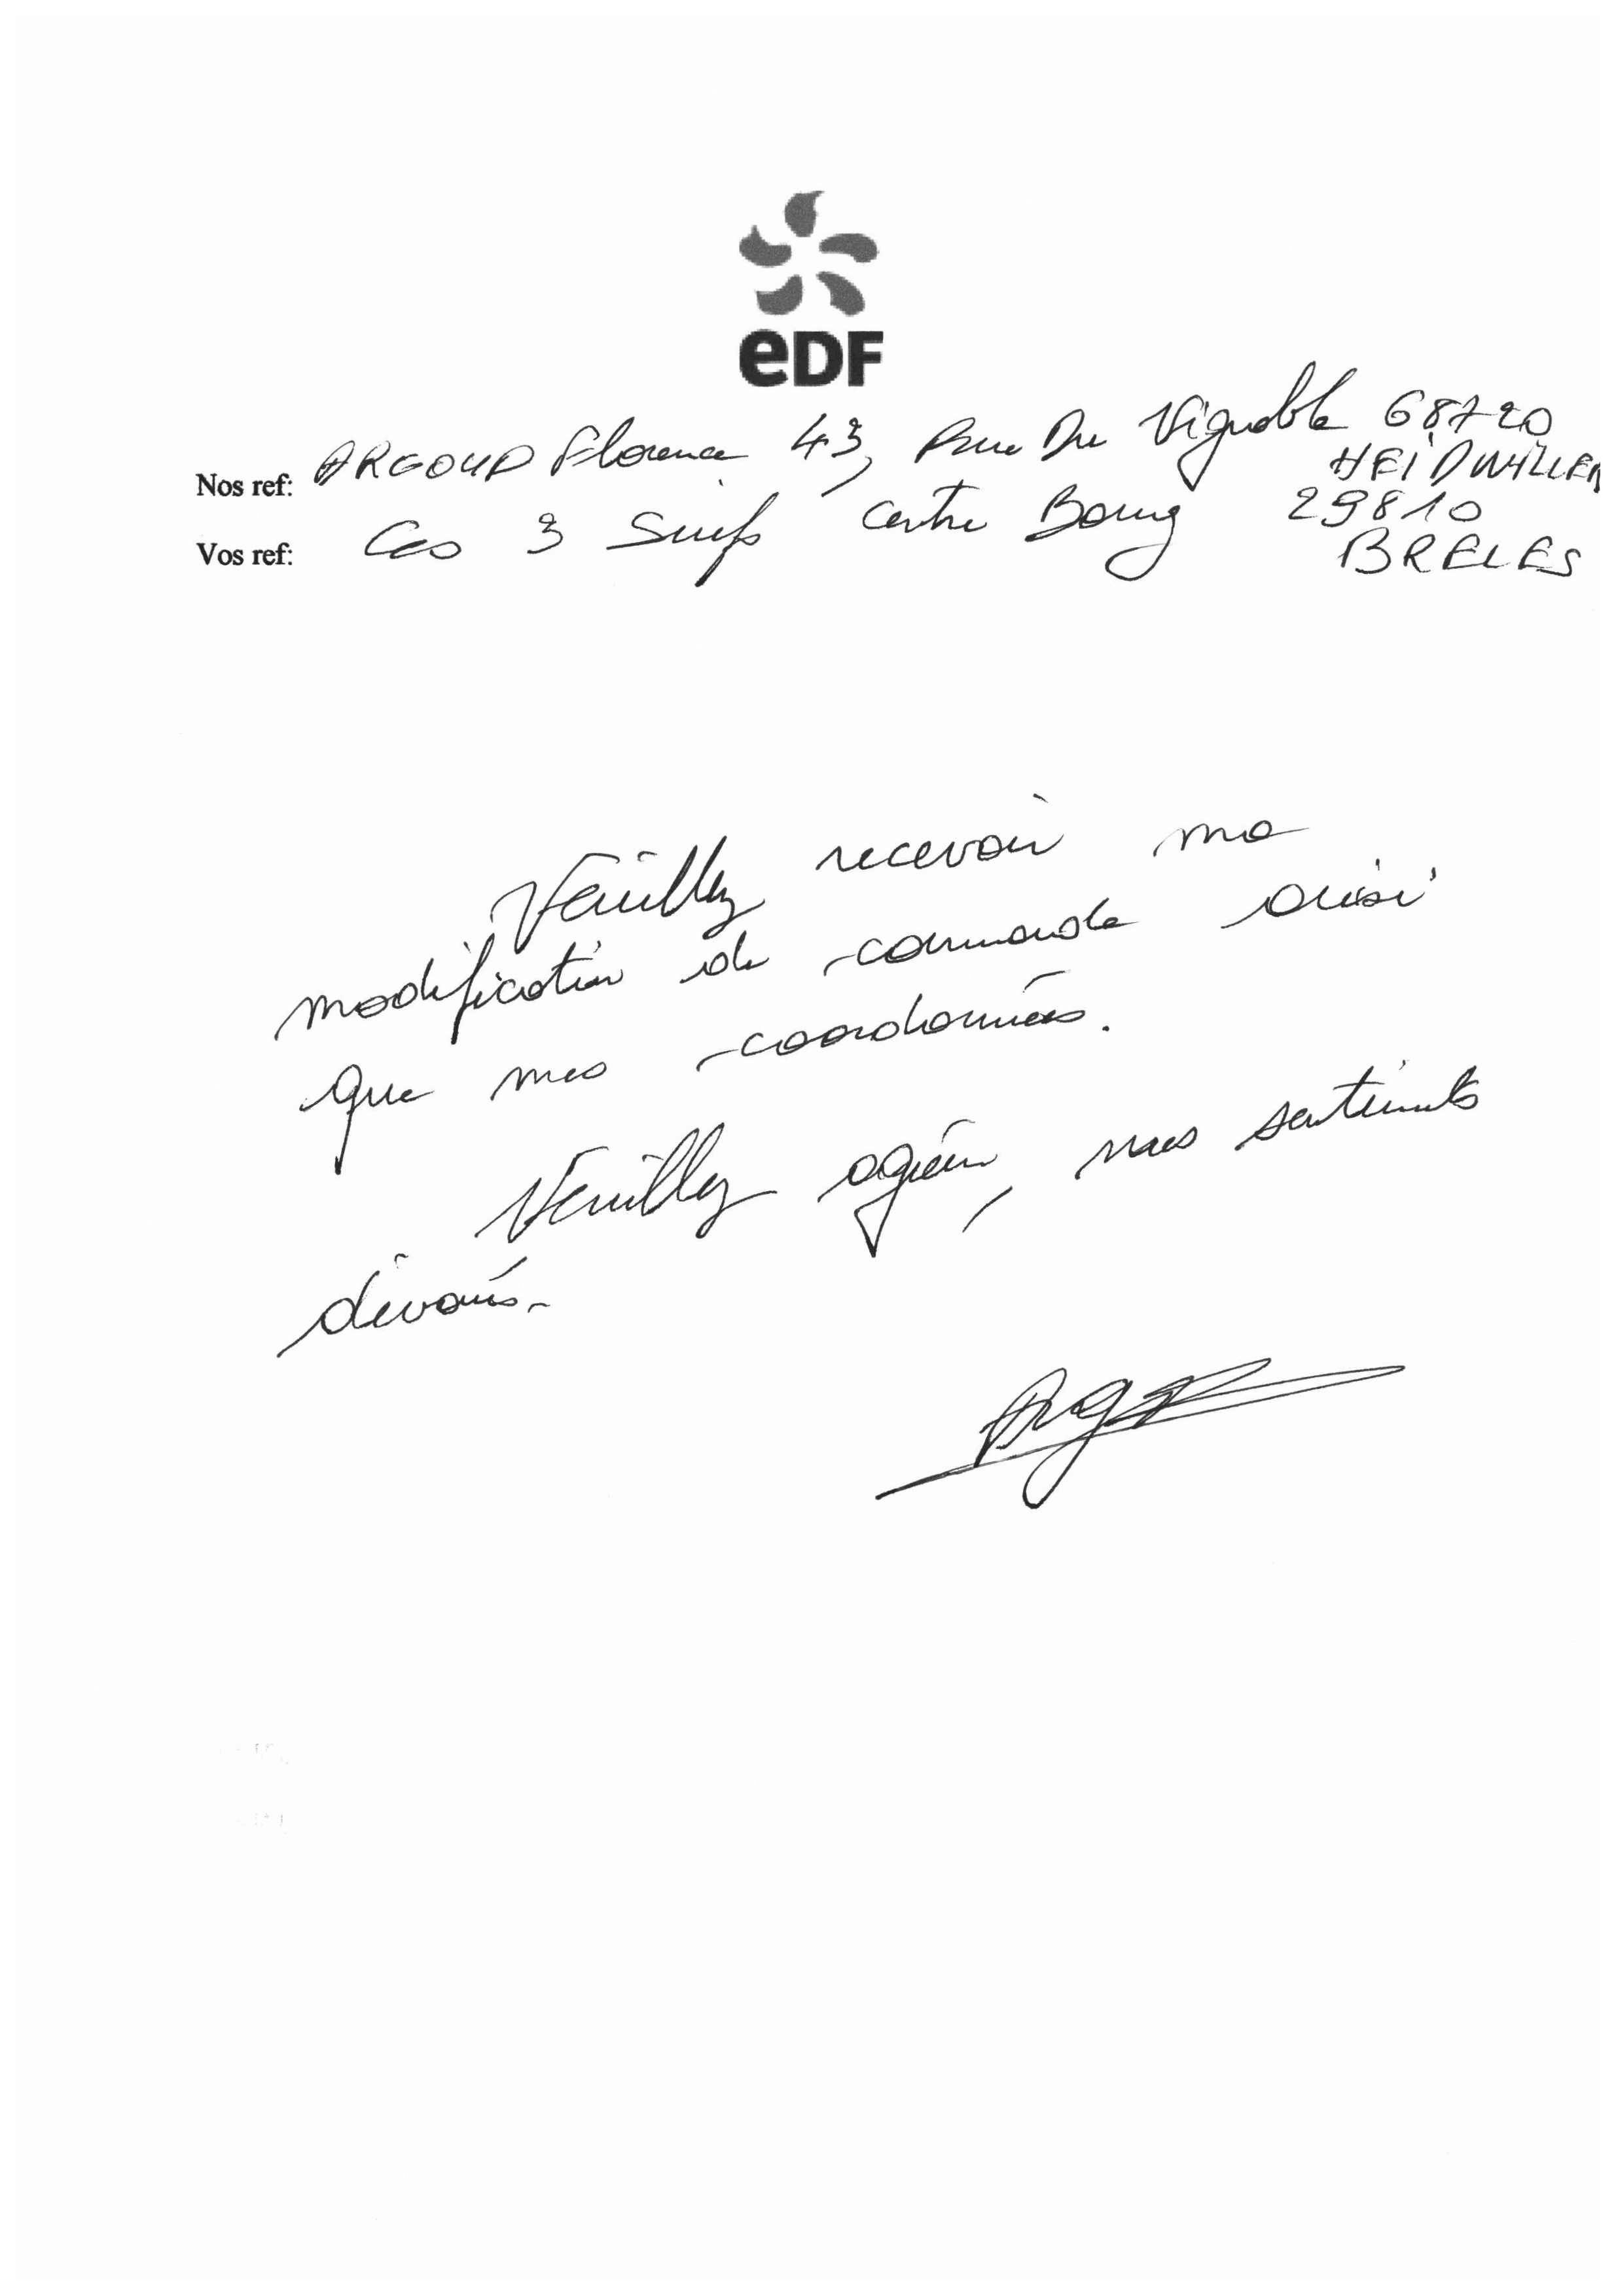 eDF
Nos ref: ARGOUD Florence 43, Rue Du Vignoble 68720
HEIDWILLER
Vos ref: Les 3 Suifs Centre Bourg 29810
BRELES
Veuillez recevoir ma
modification de commande ainsi
que mes coordonnées.
Veuillez agréer, mes sentiments
dévoués.